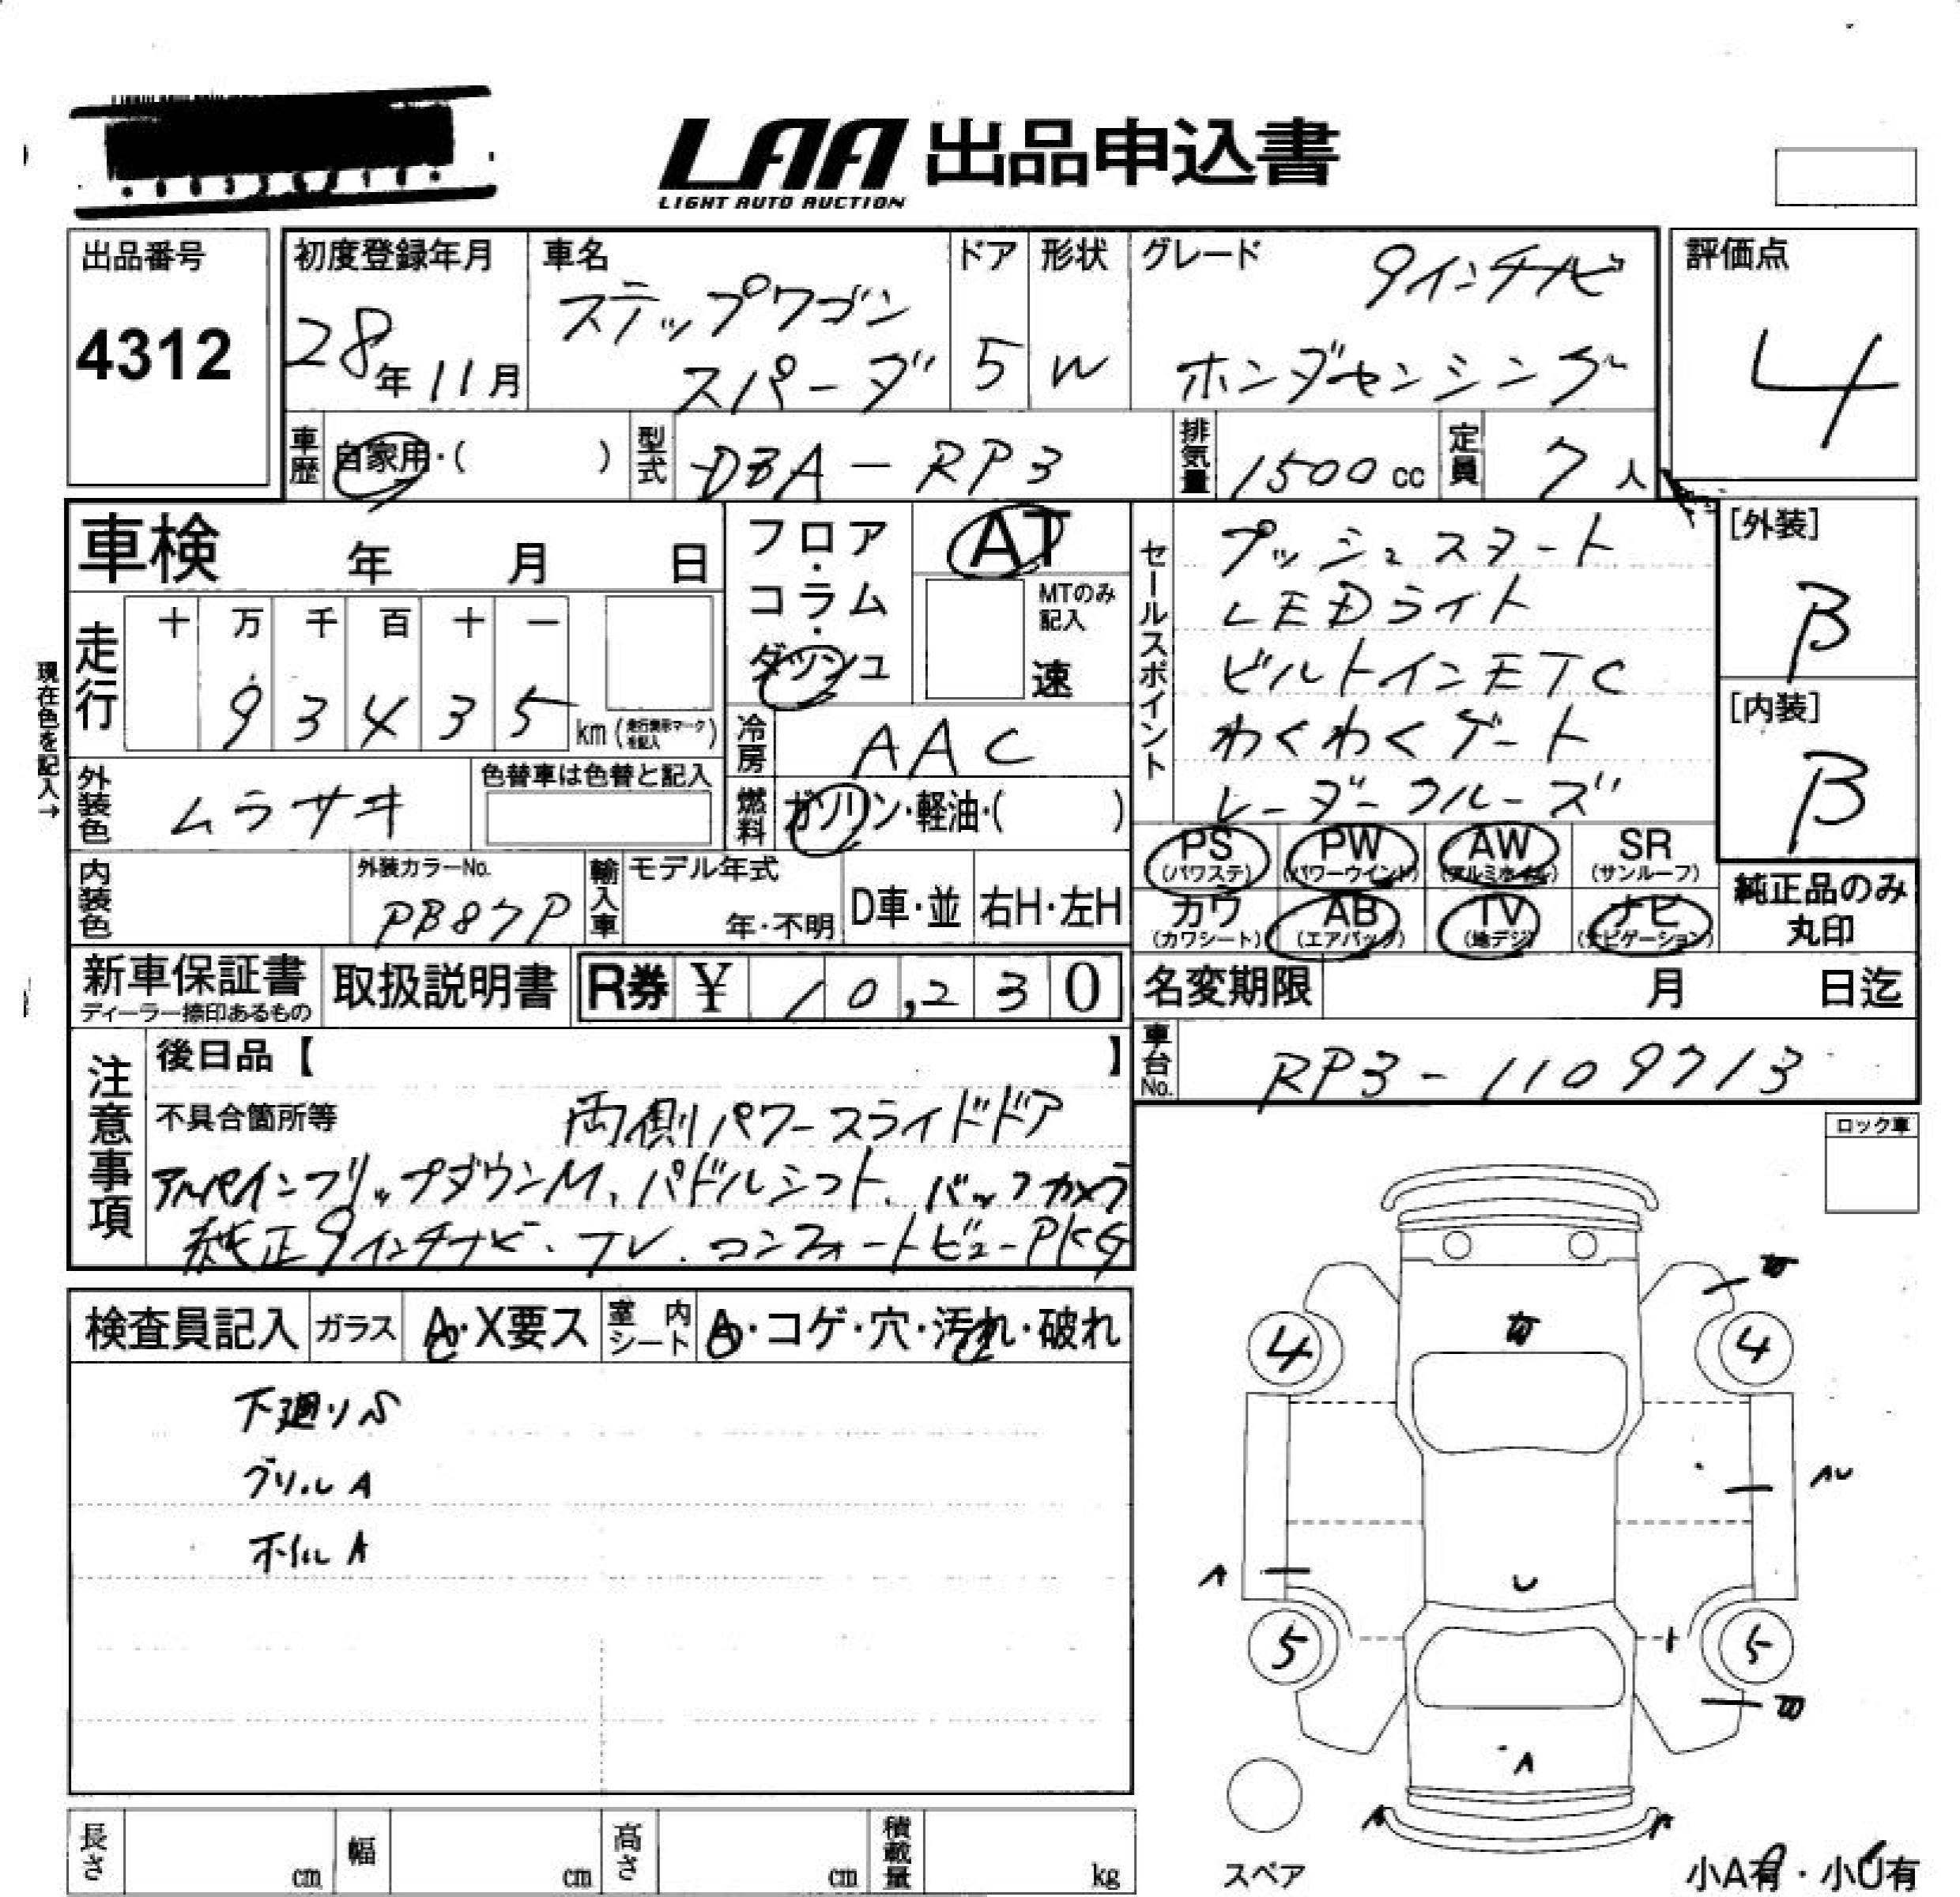 LAA 出品申込書
LIGHT AUTO AUCTION
出品番号
4312
初度登録年月
28年11月
車名
ステップワゴン
スパーダ
ドア
5
形状
W
グレード
9インチナビ
ホンダセンシング
評価点
4
車歴 自家用・( )
型式 DBA-RP3
排気量 1500cc
定員 7人
車検 年 月 日
フロア・コラム・ダッシュ
AT
MTのみ記入
速
セールスポイント
プッシュスタート
LEDライト
ビルトインETC
わくわくゲート
レーダークルーズ
[外装]
B
[内装]
B
現在色を記入→
走行
十 万 千 百 十 一
9 3 4 3 5 km
冷房 AAC
外装色 ムラサキ
色替車は色替と記入
燃料 ガソリン・軽油・( )
PS (パワステ)
PW (パワーウインド)
AW (アルミホイル)
SR (サンルーフ)
カワ (カワシート)
AB (エアバック)
TV (地デジ)
ナビ (ナビゲーション)
純正品のみ
丸印
内装色
外装カラーNo.
PB87P
輸入車
モデル年式
年・不明
D車・並
右H・左H
新車保証書
ディーラー捺印あるもの
取扱説明書
R券 ¥ 10,230
名変期限 月 日迄
車台No. RP3-1109713
注意事項
後日品【 】
不具合箇所等
両側パワースライドドア
アルパインフリップダウンM、パドルシフト、バックカメラ
純正9インチナビ・TV、コンフォートビューPKG
ロック車
検査員記入
ガラス
A・X要ス
室内シート
A・コゲ・穴・汚れ・破れ
下廻りS
グリルA
ホイルA
4
4
AU
A
U
5
5
A
A
A
スペア
小A有・小U有
長さ cm
幅 cm
高さ cm
積載量 kg